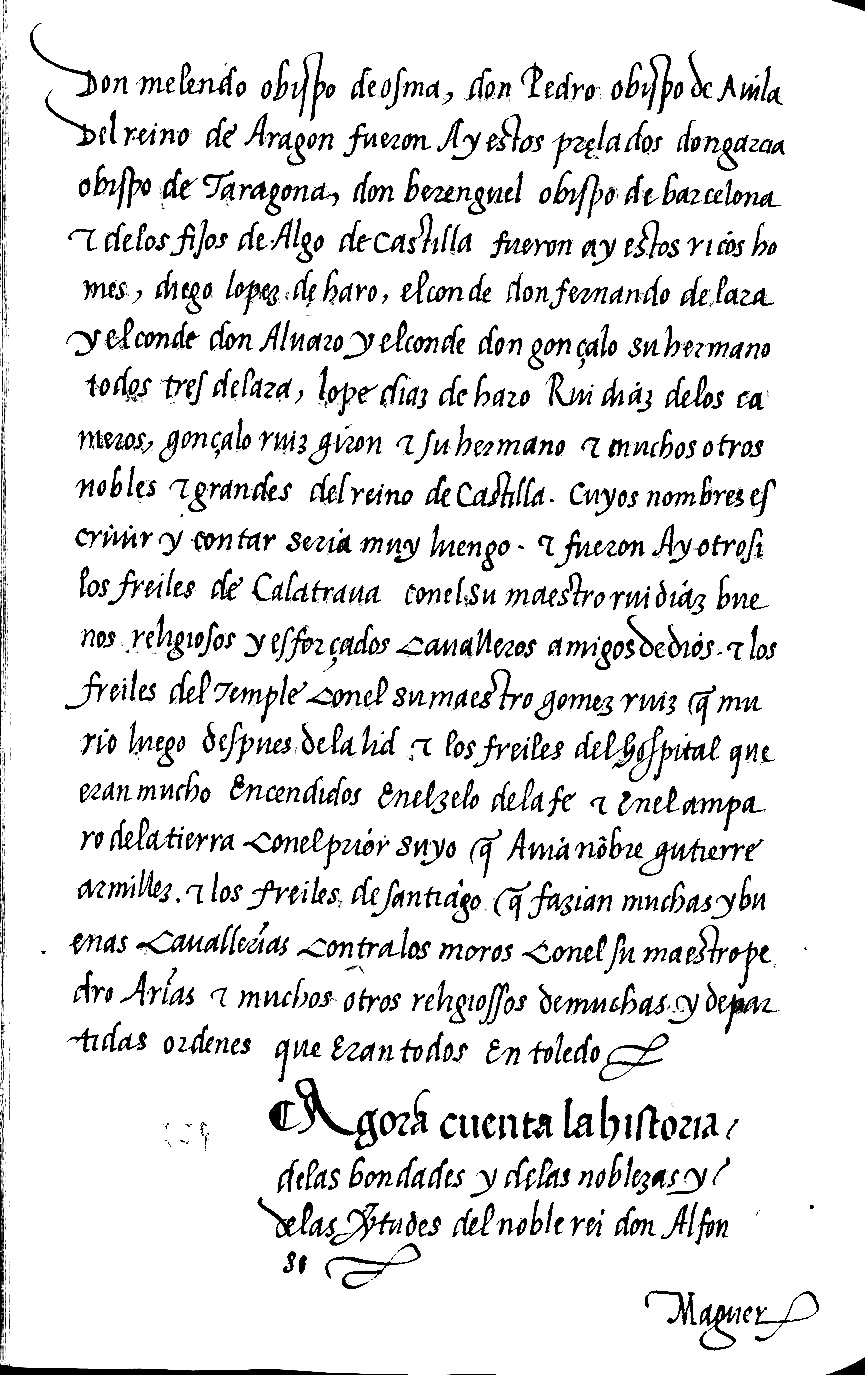 Don melendo obispo de osma, don Pedro obispo de Auila
Del reino de Aragon fueron Ay estos prelados don garcia
obispo de Taragona, don berenguel obispo de barcelona
⁊ delos fijos de Algo de Castilla fueron ay estos ricos ho
mes, diego lopez de haro, el conde don fernando de lara
y el conde don Aluaro y el conde don gonçalo su hermano
todos tres de lara, lope diaz de haro Rui diáz delos ca
meros, gonçalo ruiz giron ⁊ su hermano ⁊ muchos otros
nobles ⁊ grandes del reino de Castilla. Cuyos nombres es
criuir y contar seria muy luengo. ⁊ fueron Ay otrosi
los freiles de Calatraua conel su maestro rui diáz bue
nos religiosos y esforçados caualleros amigos de diós. ⁊ los
freiles del Temple conel su maestro gomez ruiz q̃ mu
rio luego despues de la lid ⁊ los freiles del hospital que
eran mucho encendidos enel zelo de la fe ⁊ enel ampa
ro de la tierra conel priór suyo q̃ Auiá nõbre gutierre
armillez. ⁊ los freiles de santiágo q̃ fazian muchas y bu
enas cauallerías contra los moros conel su maestro pe
dro Arías ⁊ muchos otros religiossos de muchas y depar
tidas ordenes que eran todos en toledo
Agora cuenta la historia
delas bondades y delas noblezas y
delas v̉tudes del noble rei don Alfon
so
Maguer